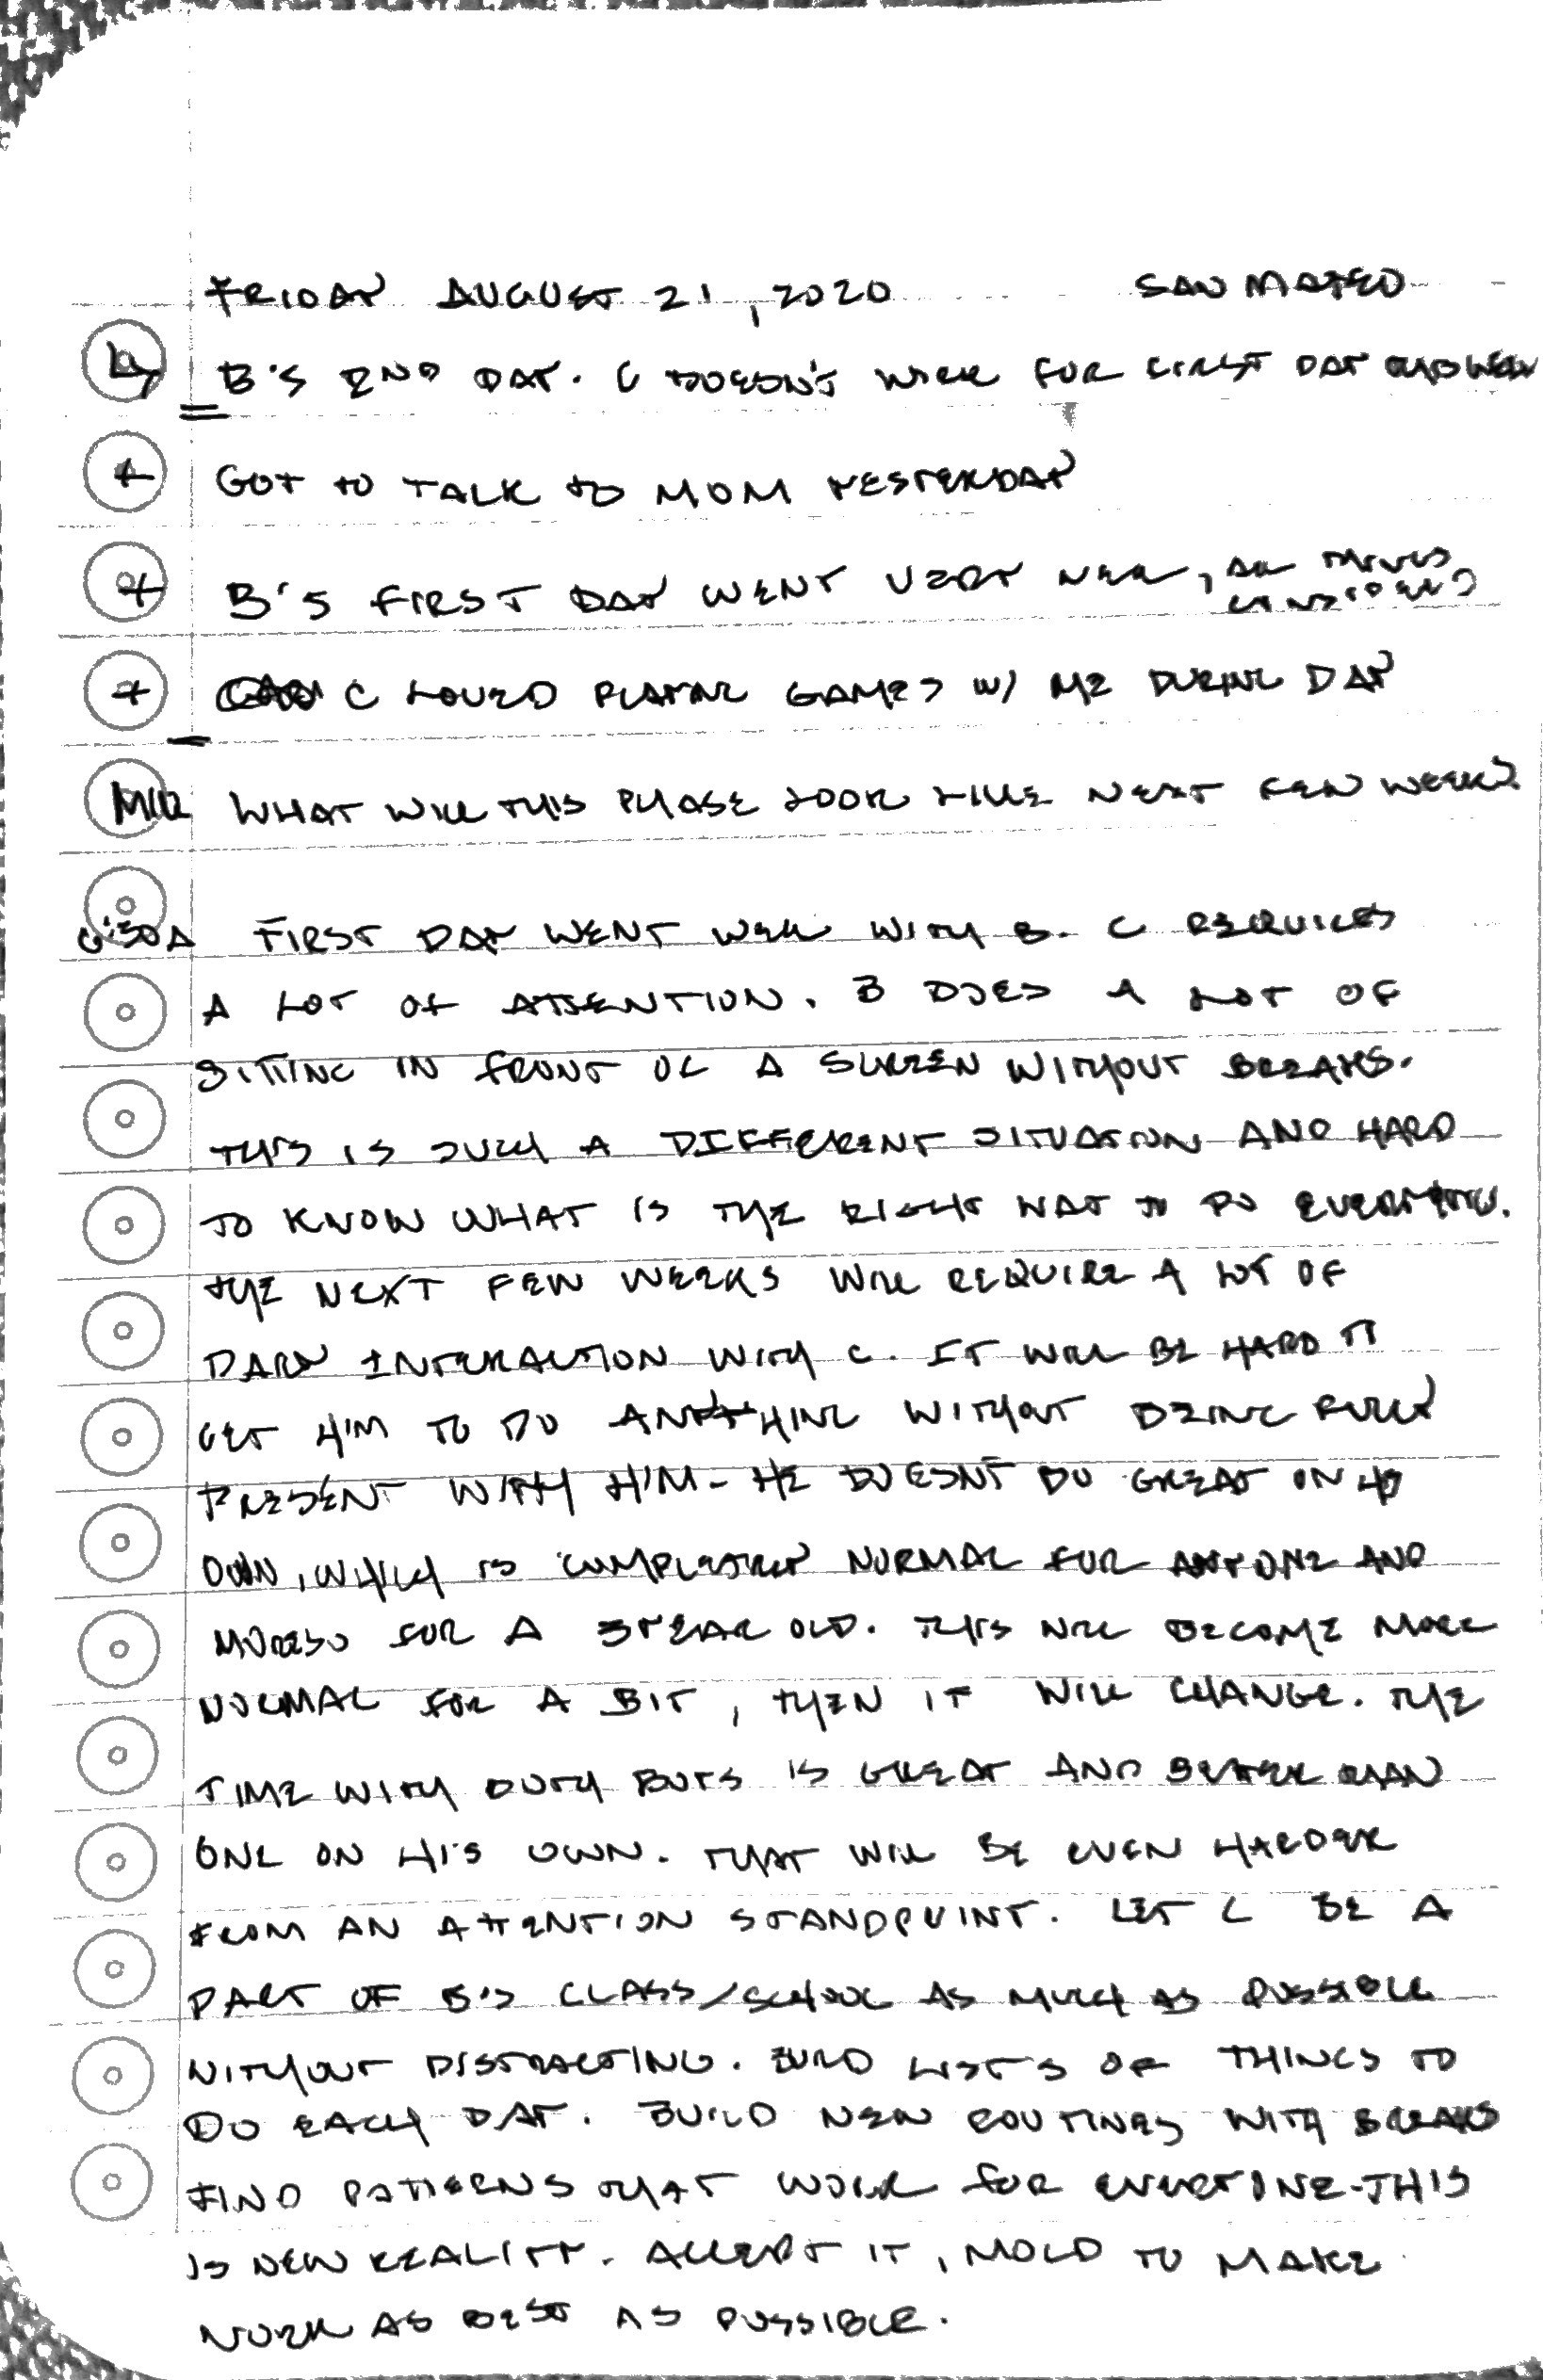 FRIDAY AUGUST 21, 2020 SAN MATEO
B'S 2ND DAY. C DOESN'T WORK FOR FIRST DAY
+ GOT TO TALK TO MOM YESTERDAY
+ B'S FIRST DAY WENT VERY WELL, ALL THINGS
CONSIDERED
+ C LOVED PLAYING GAMES W/ ME DURING DAY
WHAT WILL THIS PHASE LOOK LIKE NEXT FEW WEEKS
6:30A FIRST DAY WENT WELL WITH B. C REQUIRES
A LOT OF ATTENTION. B DOES A LOT OF
SITTING IN FRONT OF A SCREEN WITHOUT BREAKS.
THIS IS SUCH A DIFFERENT SITUATION AND HARD
TO KNOW WHAT IS THE RIGHT WAY TO DO EVERYTHING.
THE NEXT FEW WEEKS WILL REQUIRE A LOT OF
DAILY INTERACTION WITH C. IT WILL BE HARD TO
GET HIM TO DO ANYTHING WITHOUT BEING FULLY
PRESENT WITH HIM - HE DOESN'T DO GREAT ON HIS
OWN, WHICH IS COMPLETELY NORMAL FOR ANYONE AND
MORESO FOR A 3 YEAR OLD. THIS WILL BECOME MORE
NORMAL FOR A BIT, THEN IT WILL CHANGE. THE
TIME WITH BOTH BOYS IS GREAT AND BETTER THAN
ONE ON HIS OWN. THAT WILL BE EVEN HARDER
FROM AN ATTENTION STANDPOINT. LET C BE A
PART OF B'S CLASS/SCHOOL AS MUCH AS POSSIBLE
WITHOUT DISTRACTING. BUILD LISTS OF THINGS TO
DO EACH DAY. BUILD NEW ROUTINES WITH BREAKS
FIND PATTERNS THAT WORK FOR EVERYONE - THIS
IS NEW REALITY. ACCEPT IT, MOLD TO MAKE
WORK AS BEST AS POSSIBLE.